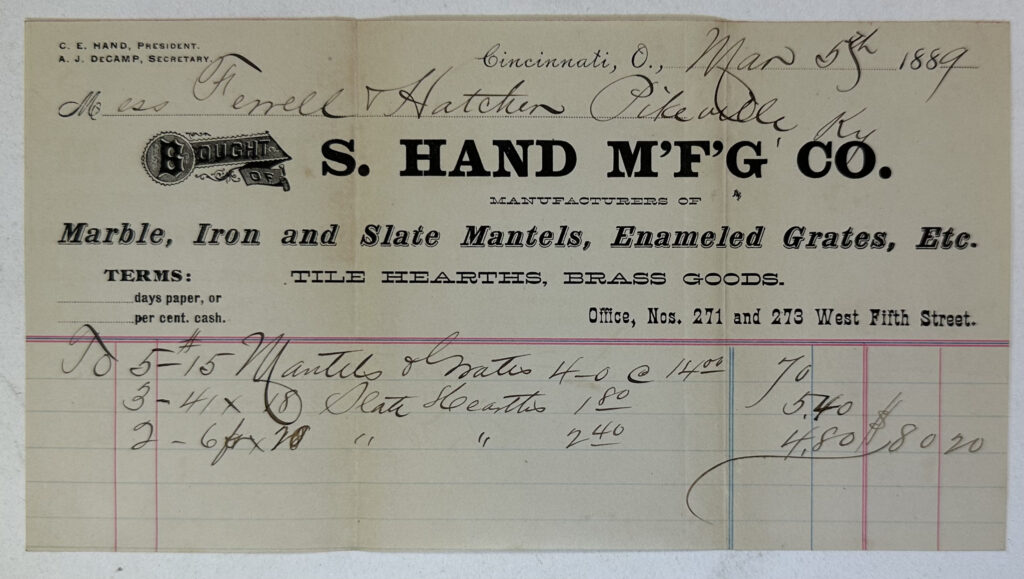 C. E. HAND, PRESIDENT.
A. J. DECAMP, SECRETARY.
Cincinnati, O., Mar 5th 1889
Mess Ferrell & Hatcher Pikeville Ky
BOUGHT OF
S. HAND M'F'G CO.
MANUFACTURERS OF
Marble, Iron and Slate Mantels, Enameled Grates, Etc.
TERMS:
TILE HEARTHS, BRASS GOODS.
days paper, or
per cent. cash.
Office, Nos. 271 and 273 West Fifth Street.
To 5 - #15 Mantels & Grates 4-0 @ 14.00 70
3 - 41 x 18 Slate Hearths 1 80 5.40
2 - x 20 " " 2 40 4.80 $80 20